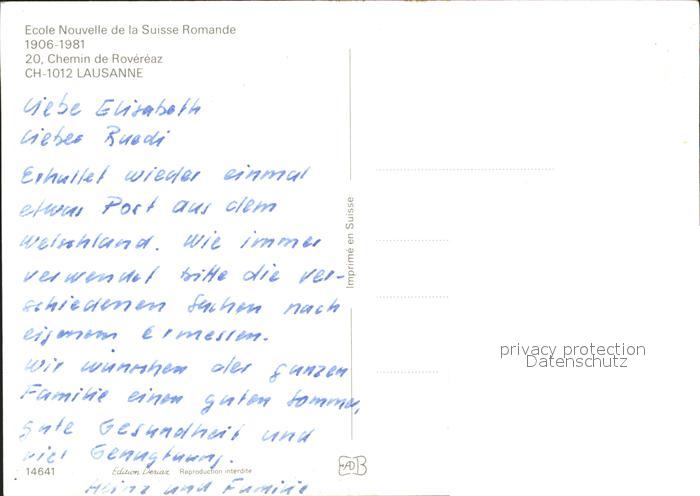 Ecole Nouvelle de la Suisse Romande
1906-1981
20, Chemin de Rovéréaz
CH-1012 LAUSANNE
Liebe Elisabeth
Lieber Ruedi
Erhaltet wieder einmal
etwas Post aus dem
Welschland. Wie immer
verwendet bitte die ver-
schiedenen Sachen nach
eigenem Ermessen.
Wir wünschen der ganzen
Familie einen guten Sommer,
gute Gesundheit und
viel Genugtuung.
Heinz und Familie
14641
Edition Deriaz Reproduction interdite
Imprimé en Suisse
privacy protection
Datenschutz